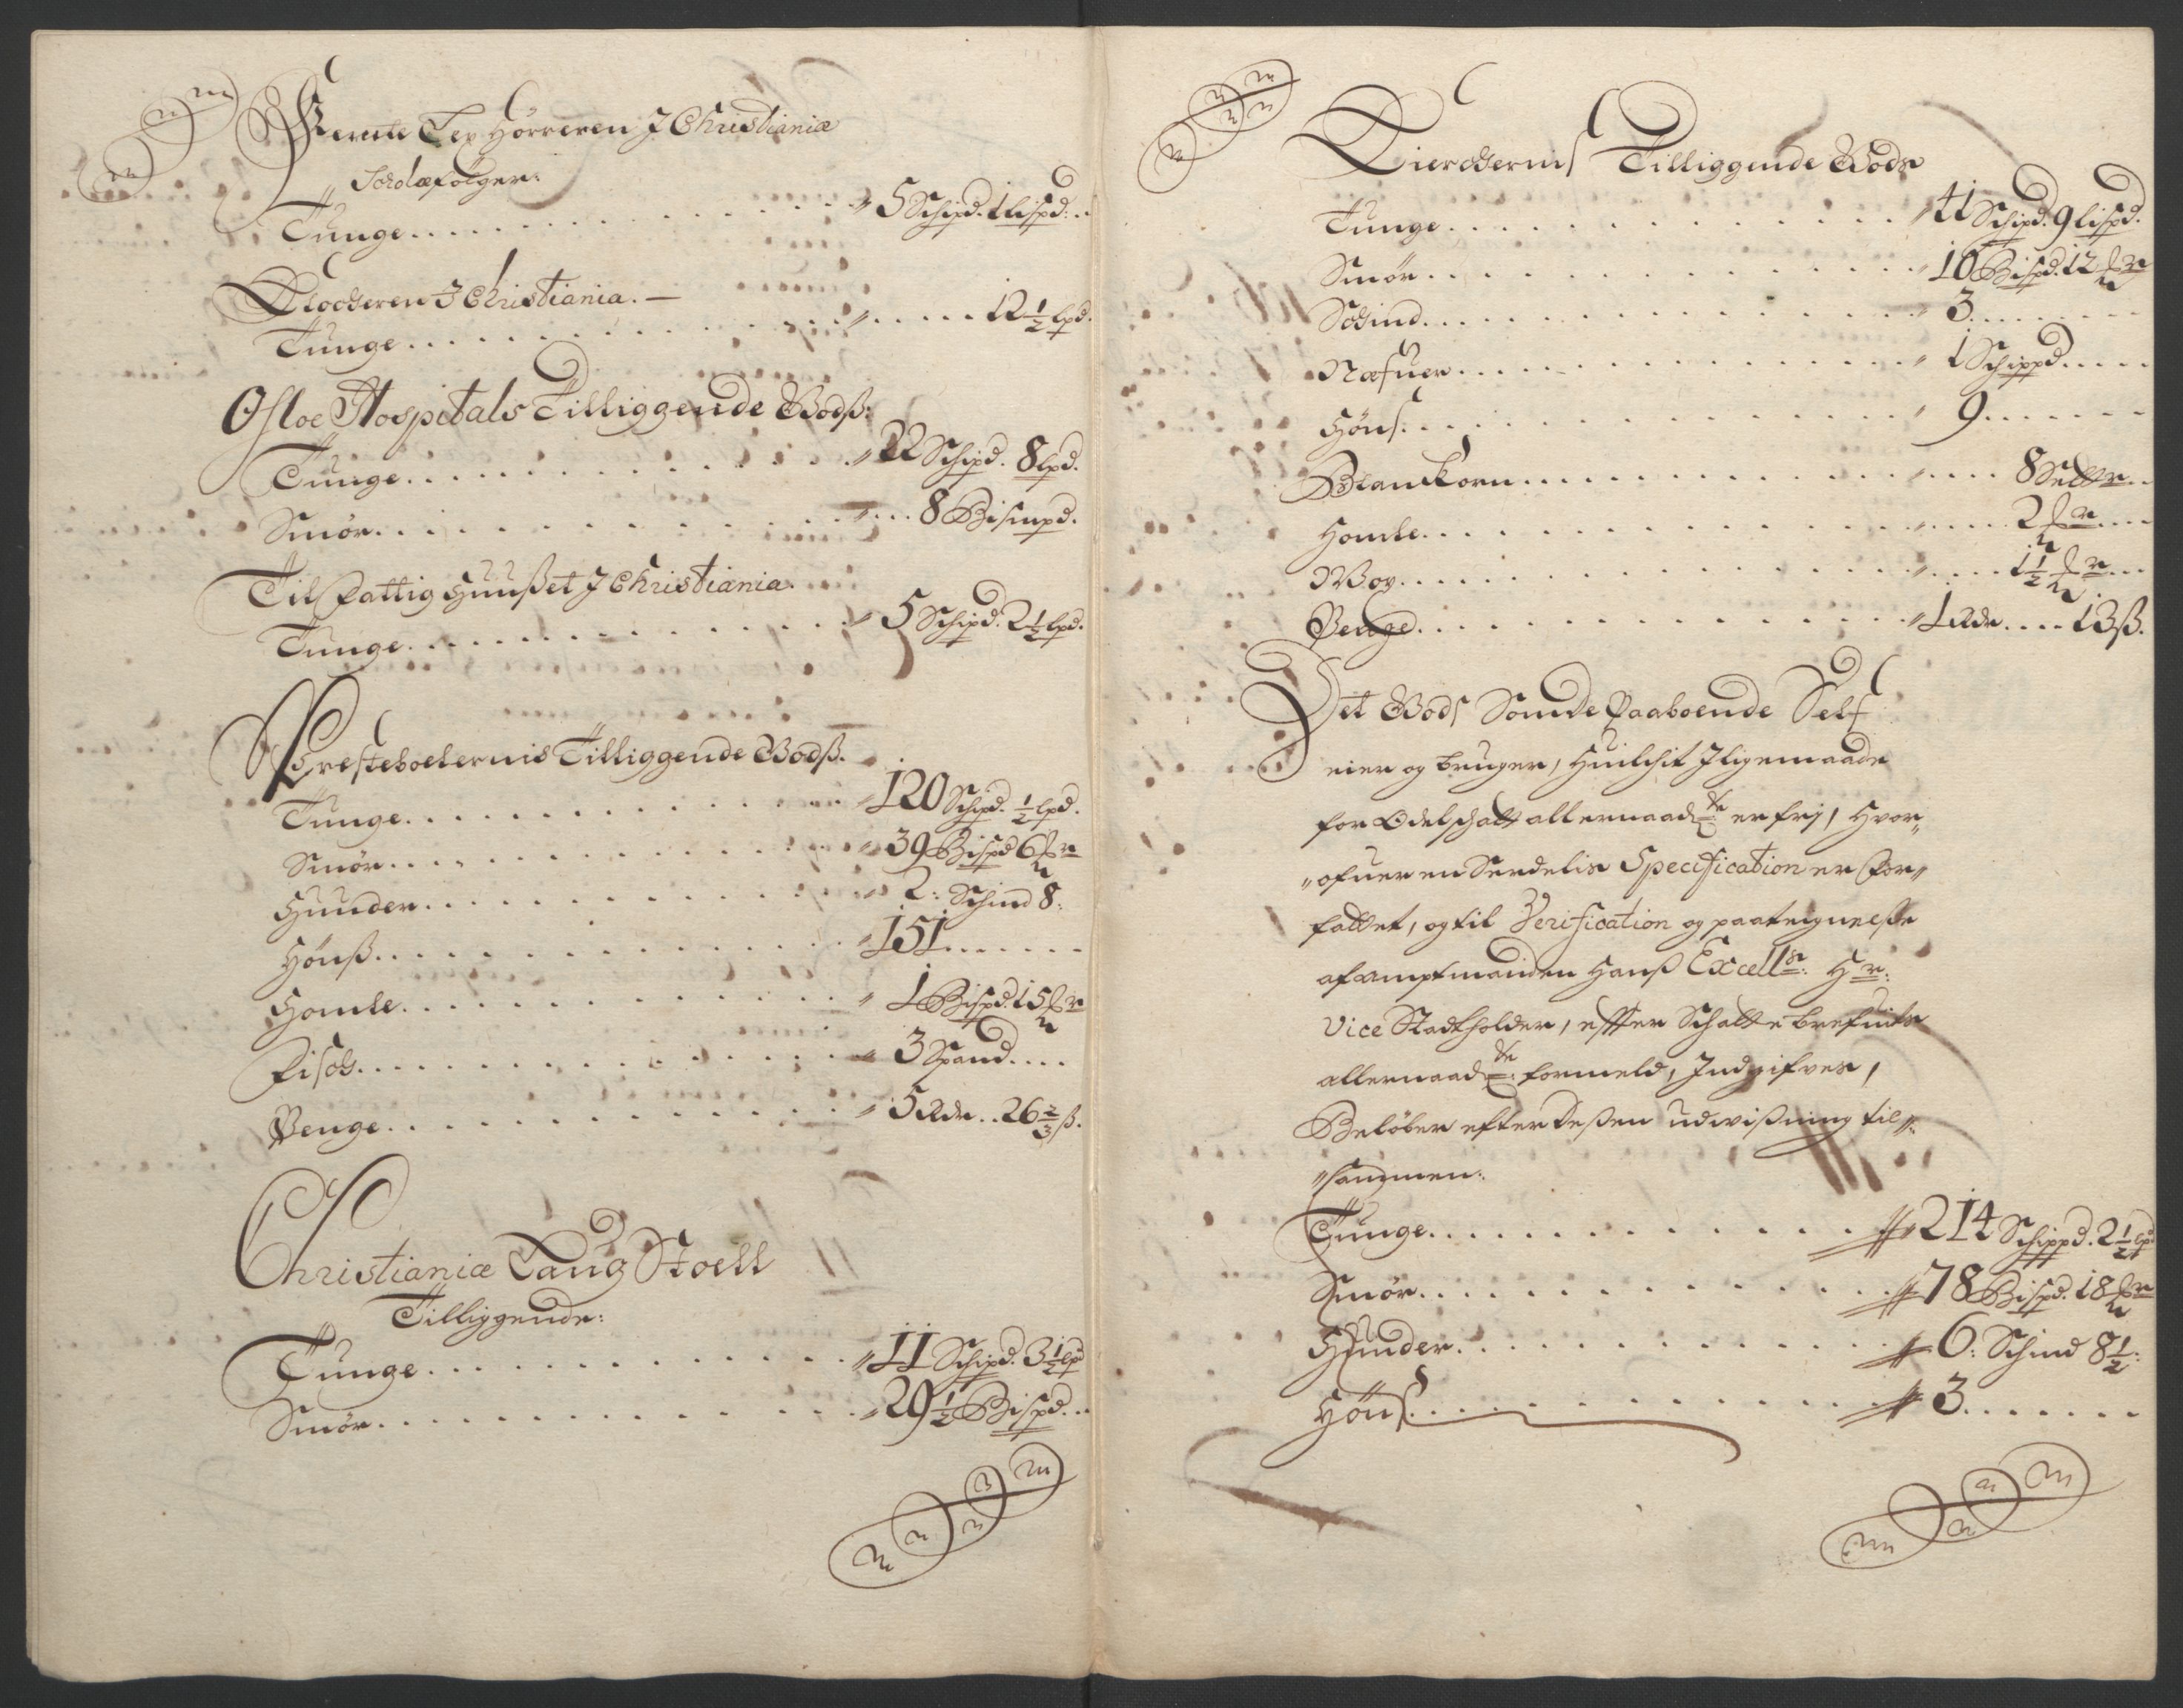 Fierde Lex Hörreren J Christianiæ
Scholæfölger:
Tunge 5 Schipd. 1 lispd:
Klockeren J Christiania.
Tunge 12 1/2 lpd.
Osloe Hospitals Tilliggende Godß:
Tunge 22 Schipd. 8 lpd.
Smör 8 Bismpd.
Til Fattig Huußet J Christiania.
Tunge 5 Schipd: 2 1/2 lpd.
Presteboelernis Tilliggende Godß.
Tunge 120 Schipd. 1/2 lpd.
Smör 39 Bispd 6 mr
Huuder 2: Schind 8:
Hönß 151
Homle 1 Bispd. 15 mr
Fisch 3 Spand
Penge 5 Rdr 26 2/3 ß.
Christianiæ Laug Stoell
Tilliggende:
Tunge 11 Schipd. 3 1/2 lpd
Smör 29 1/2 Bispd.
Kierckernis Tilliggende Gods
Tunge 41 Schipd. 9 lispd.
Smör 10 Bispd. 12 mr
Schind 3
Næfuer 1 Schippd
Höns 9
Blandkorn 8 Settr
Homle 2 mr
Vox 1 1/2 mr
Penge 1 Rdr 13 ß.
Det Gods Som de Paaboende Self
eier og bruger, Huilchet Jligemaade
for Odelschatt allernaadste er frj, Hvor
ofuer en Serdelis Specification er for
fattet, og til Verification og paateignelße
af Amptmanden Hanß Excellr: Hr:
Vice Stadtholder, effter Schatte brefuits
allernaadste: formeld, Indgifves,
Beløber efter deßen udvißning til
sammen:
Tunge 214 Schippd. 2 1/2 lpd
Smör 78 Bispd. 18 mr
Huuder 6: Schind 8 1/2:
Höns 3